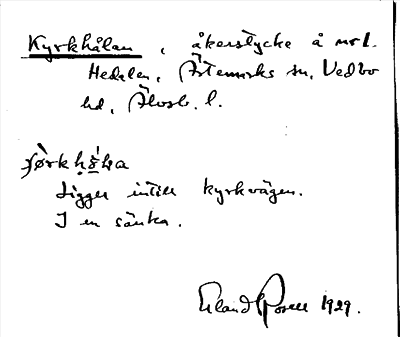 Kyrkhålan, åkerstycke å nr 1.
Hedalen, Årtemarks sn, Vedbo
hd, Älvsb. l.
Ligger intill kyrkvägen.
I en sänka.
Erland Rosell 1929.